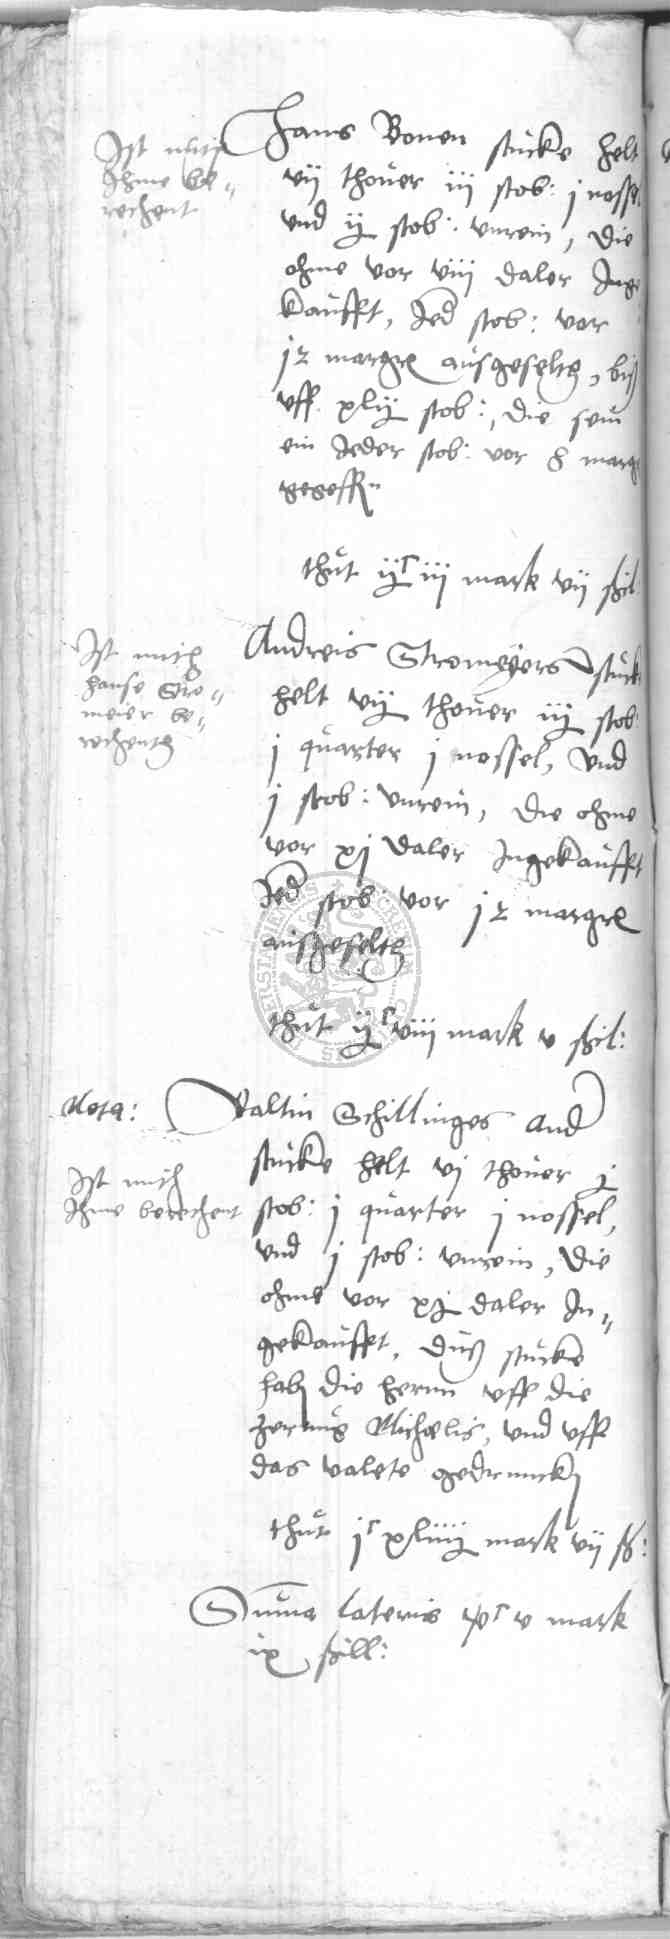 Ist mith
Ihme be-
rechent
Hans Bonen stucke helt
vij thover iij stob: j nossel
vnd ij stob: vnrein, die
ohme vor viij daler Inge
kaufft, Jed stob: vor
jz margr ausgeselth, biß
vff xlij stob:, die sein
ein Jeder stob: vor 8 marg
thut ijc iij mark vij ßil
Ist mith
hanse Stro-
meier be-
rechenth
Andreis Stromeyers stuck
helt vij thover iij stob
j quarter j nossel, vnd
j stob: vnrein, die ohme
vor xj daler Ingekaufft
Jed stob vor jz margr
ausgeselth
thut ijc viij mark v ßil:
Nota:
Valtin Schillinges And
Ist mith
Ihme berechent
stucke helt vj thover ij
stob: j quarter j nossel,
vnd j stob: vnrein, die
ohme vor xij daler In-
gekaufft, diß stucke
hab die hernn vff die
zerung Michælis, vnd vff
das valete gedrunck
thut jc xliiij mark vij ß:
Summa lateris vc v mark
ix ßill: